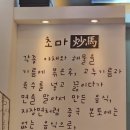 초마 炒馬
각종 야채와 해물을
기름에 볶은후, 고추가루와
육수를 넣고 끓이다가
면을 말아서 만든 음식,
자장면처럼 중국 본토에는
없는 음식으로